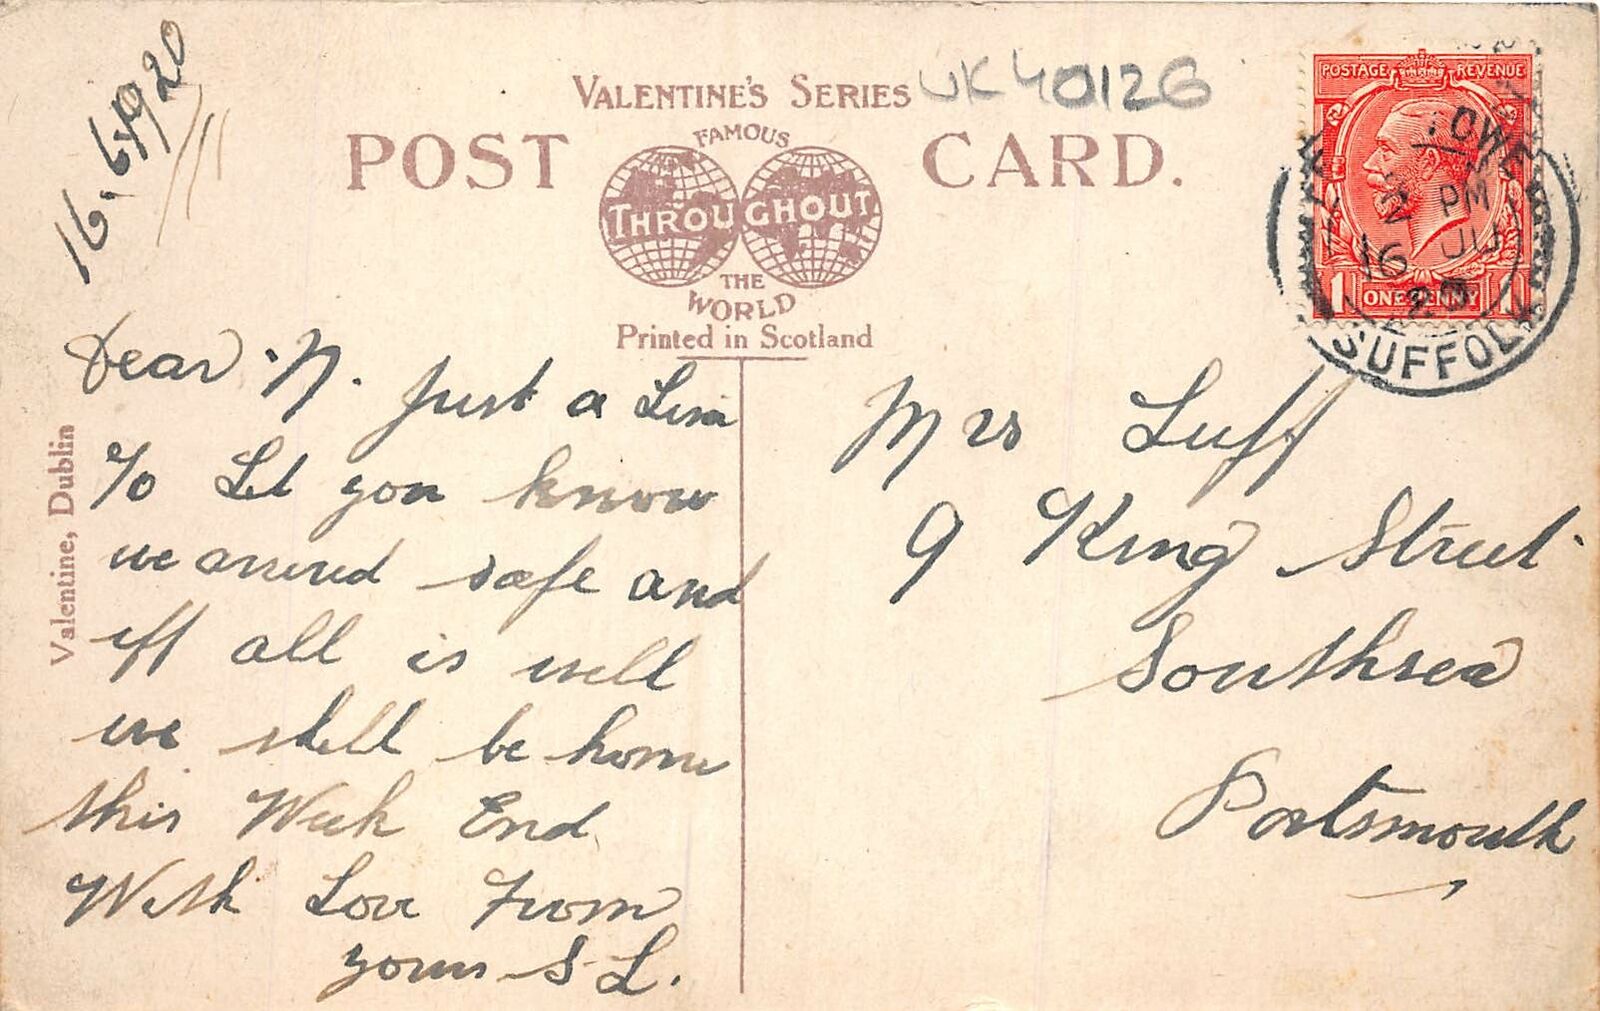 16.6.1920
VALENTINE'S SERIES
UK40126
POST CARD.
FAMOUS
THROUGHOUT
THE
WORLD
Printed in Scotland
Valentine, Dublin
POSTAGE REVENUE
1 ONE PENNY 1
2 PM
16 JU
20
SUFFOLK
Dear N. Just a Line
To Let you know
we arrived safe and
all is well
we shall be home
this Week End
With Love From
yours S L.
Mrs Luff
9 King Street
Southsea
Portsmouth